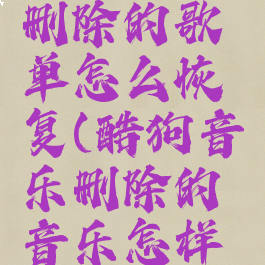 删除的歌
单怎么恢
复(酷狗音
乐删除的
音乐怎样